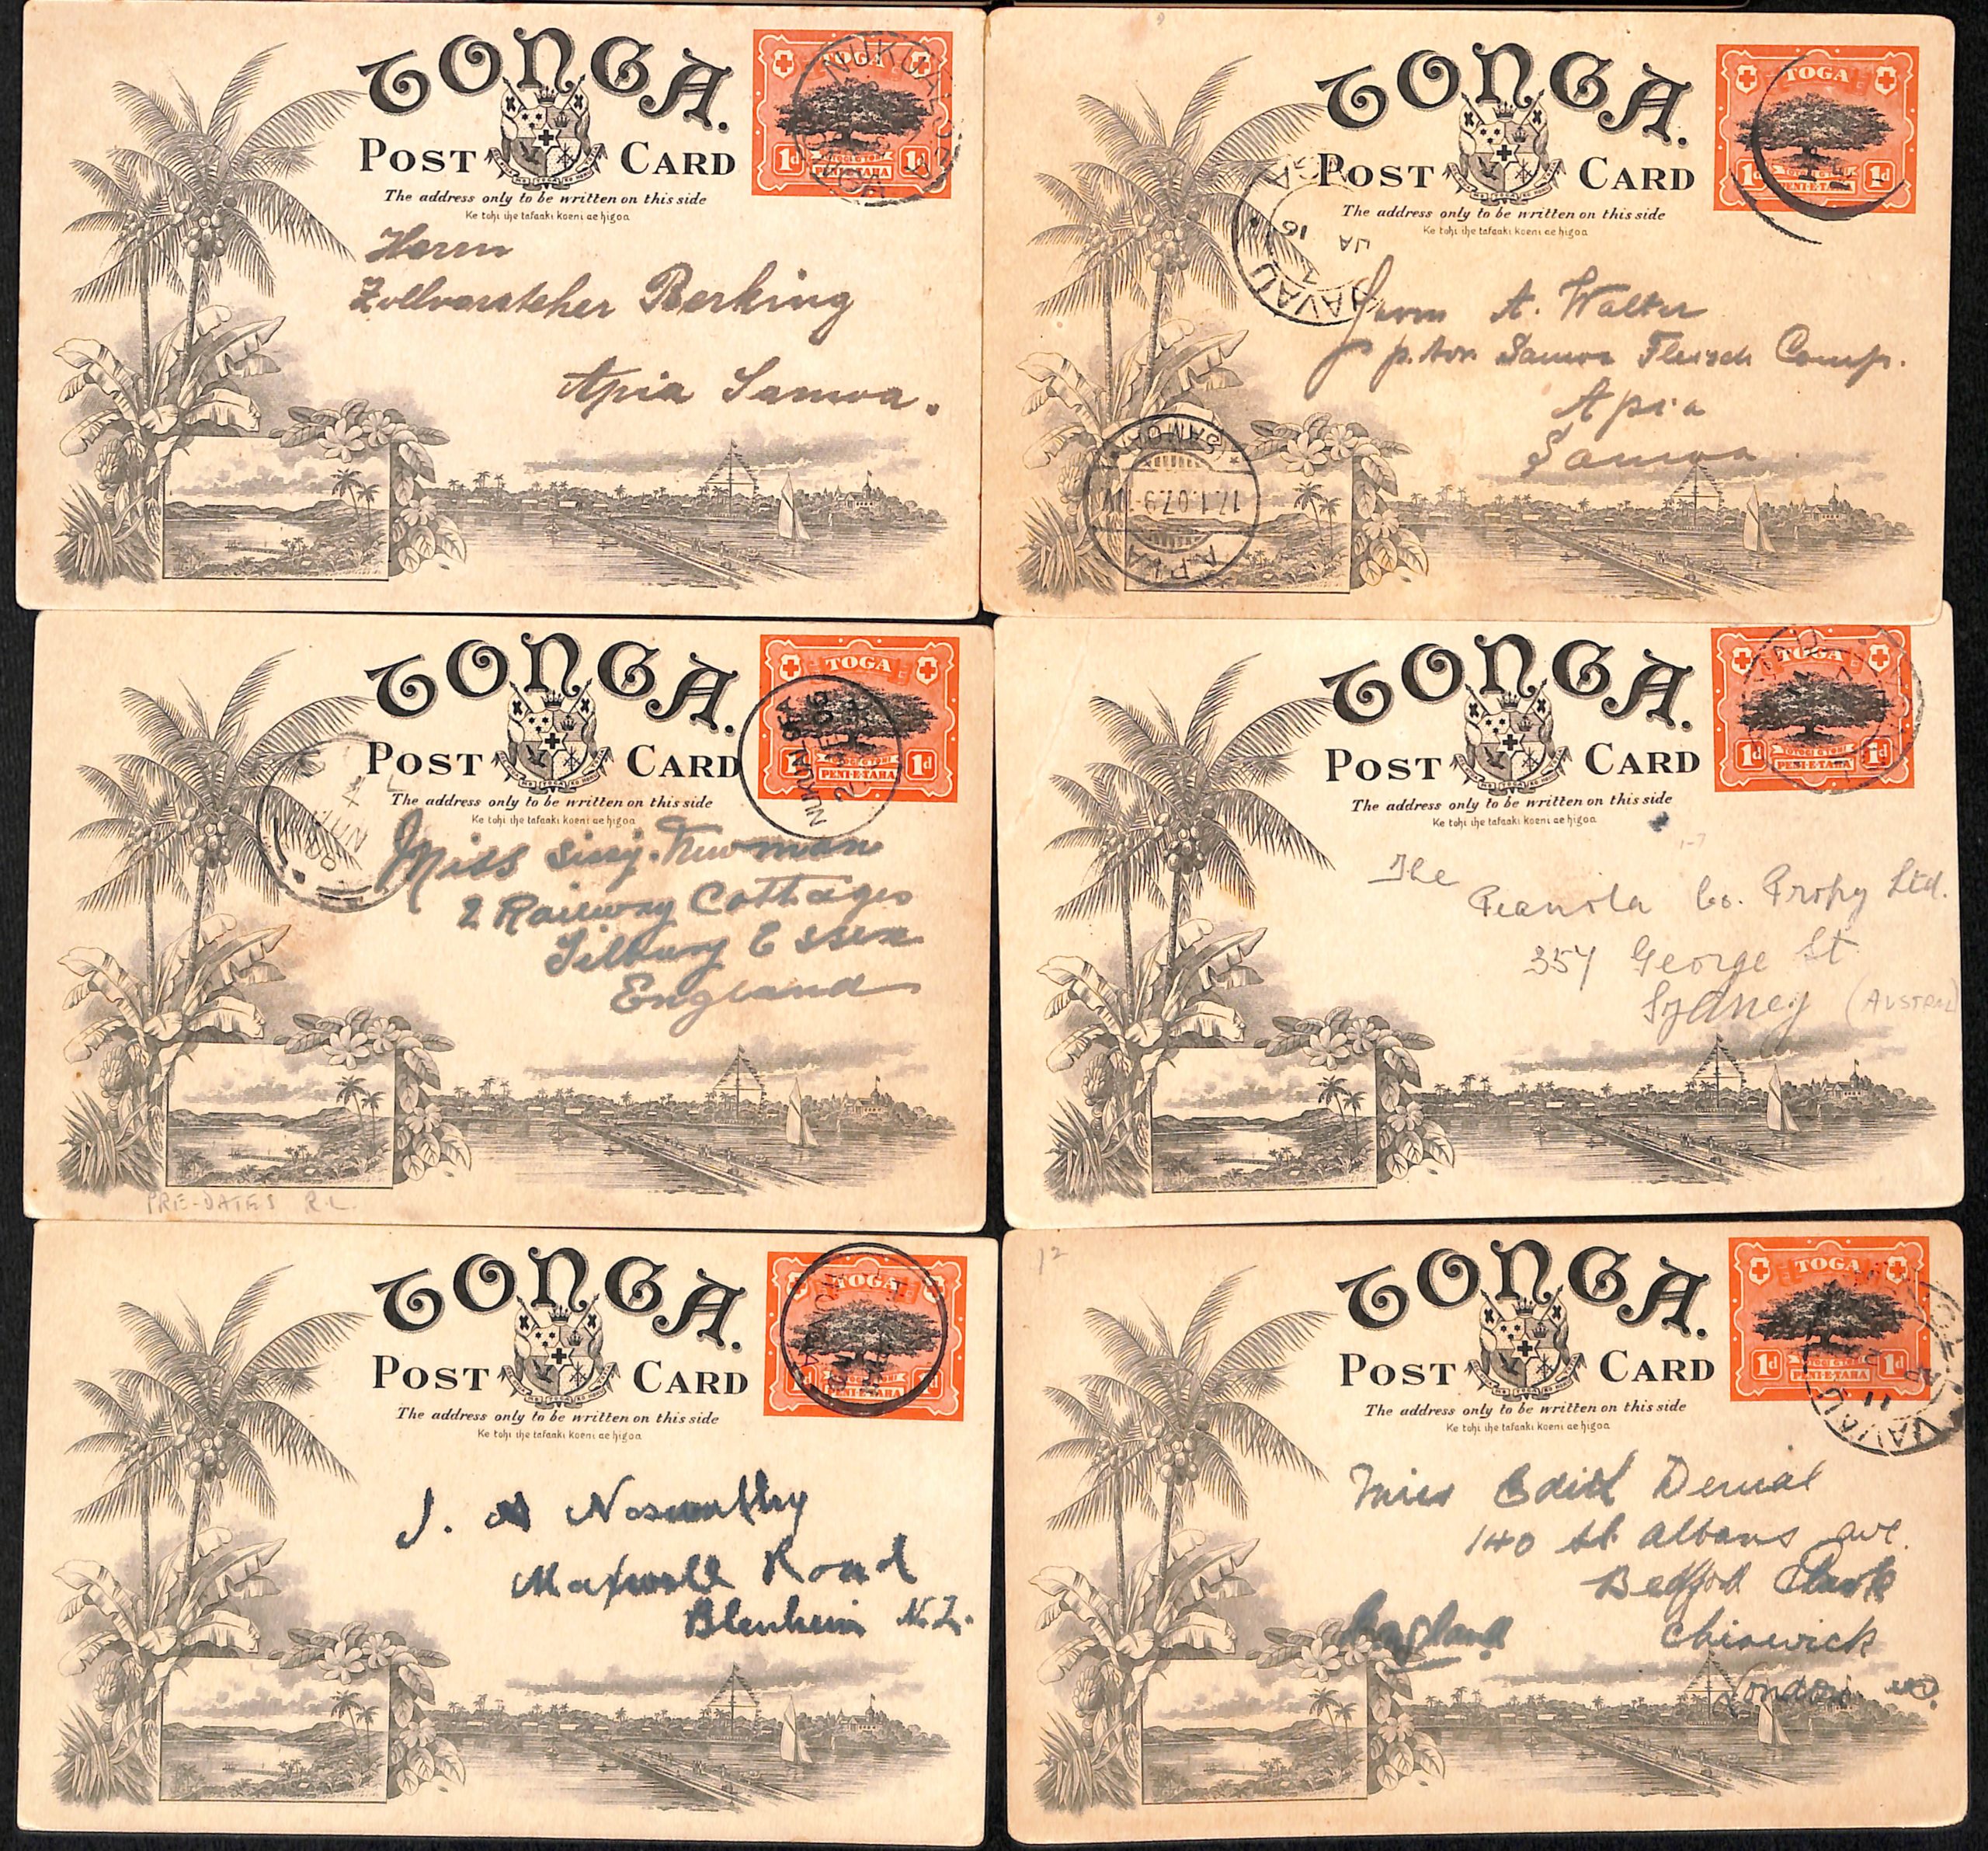 TONGA.
POST CARD
The address only to be written on this side
Ke tohi ihe tafaaki koeni ae higoa
TOGA
1d 1d
PENI-E-TAHA
NUKUALOFA
Herrn
Zollvorsteher Berking
Apia Samoa.
TONGA.
POST CARD
The address only to be written on this side
Ke tohi ihe tafaaki koeni ae higoa
TOGA
1d 1d
PENI-E-TAHA
VAVAU
JA 16
7
APIA
(SAMOA)
17.1.07.9-10V
Herrn A. Walter
p. Adr. Samoa Fleisch Comp.
Apia
Samoa
TONGA.
POST CARD
The address only to be written on this side
Ke tohi ihe tafaaki koeni ae higoa
TOGA
1d 1d
PENI-E-TAHA
NUKUALOFA
Miss Sissy. Newman
2 Railway Cottages
Tilbury Essex
England
PRE-DATES R.L.
TONGA.
POST CARD
The address only to be written on this side
Ke tohi ihe tafaaki koeni ae higoa
TOGA
1d 1d
OTOGI GTOBI
PENI-E-TAHA
The Pianola Co. Propy Ltd.
357 George St
Sydney (AUSTRAL
TONGA.
POST CARD
The address only to be written on this side
Ke tohi ihe tafaaki koeni ae higoa
TOGA
PENI-E-TAHA
J. A Nosworthy
Maxwell Road
Blenheim N.Z.
12
TONGA.
POST CARD
The address only to be written on this side
Ke tohi ihe tafaaki koeni ae higoa
TOGA
1d 1d
PENI-E-TAHA
VAVAU
11
Miss Edith
140 St. Albans ave.
Bedford Park
Chiswick
England
London